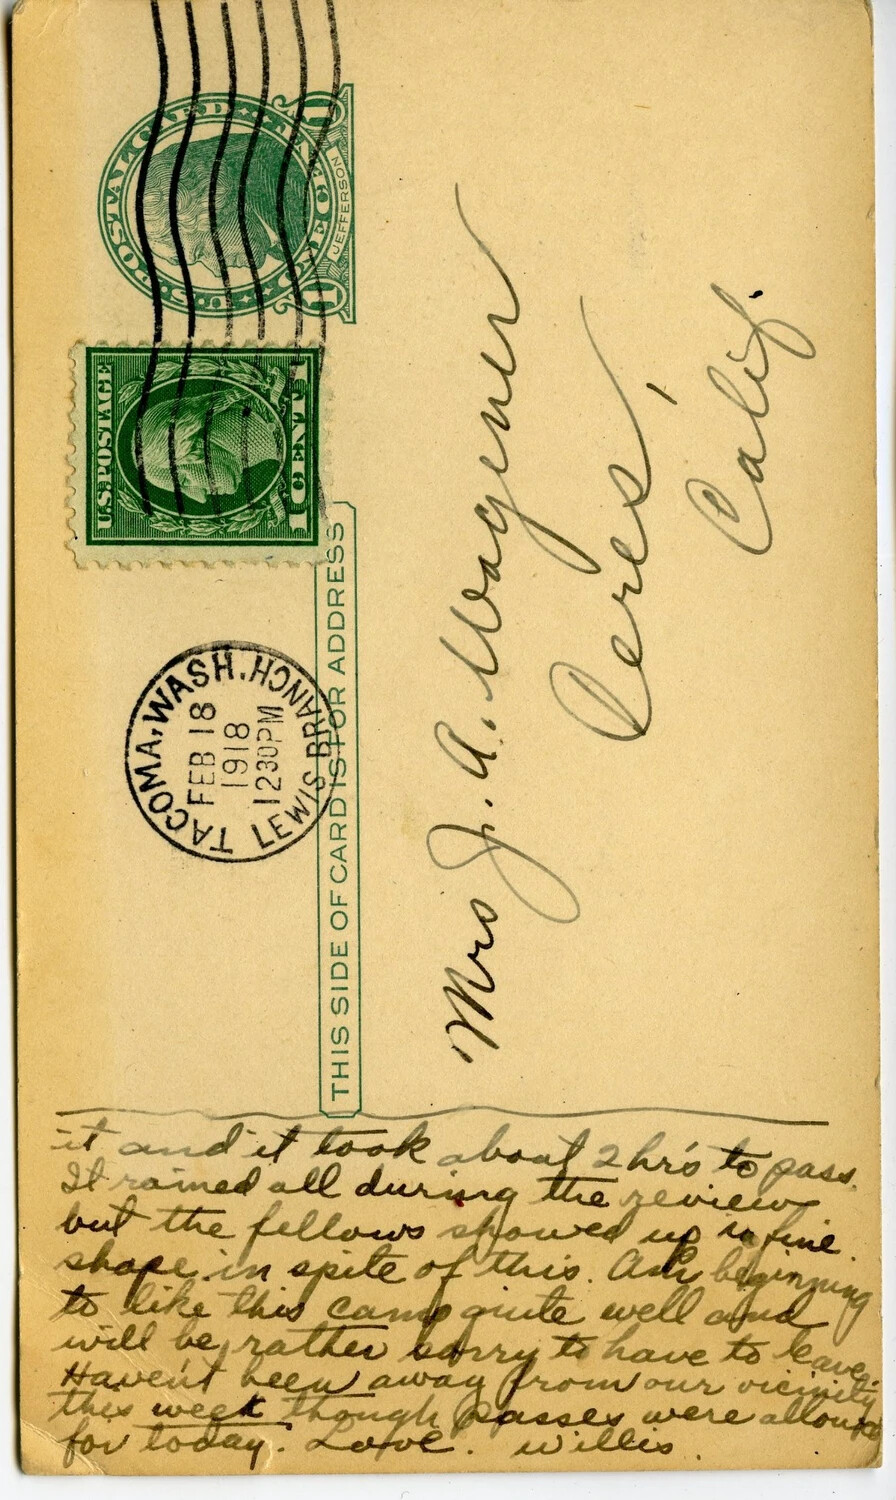 U.S. POSTAL CARD
ONE CENT
1 1
JEFFERSON
U.S. POSTAGE
1 CENT 1
TACOMA, WASH.
FEB 18
1918
1230PM
LEWIS BRANCH
THIS SIDE OF CARD IS FOR ADDRESS
Mrs J. A. Wagener
Ceres,
Calif.
it and it took about 2 hr's to pass.
It rained all during the review
but the fellows showed up in fine
shape in spite of this. Am beginning
to like this camp quite well and
will be rather sorry to have to leave.
Haven't been away from our vicinity
this week though passes were allowed
for today. Love. Willis.